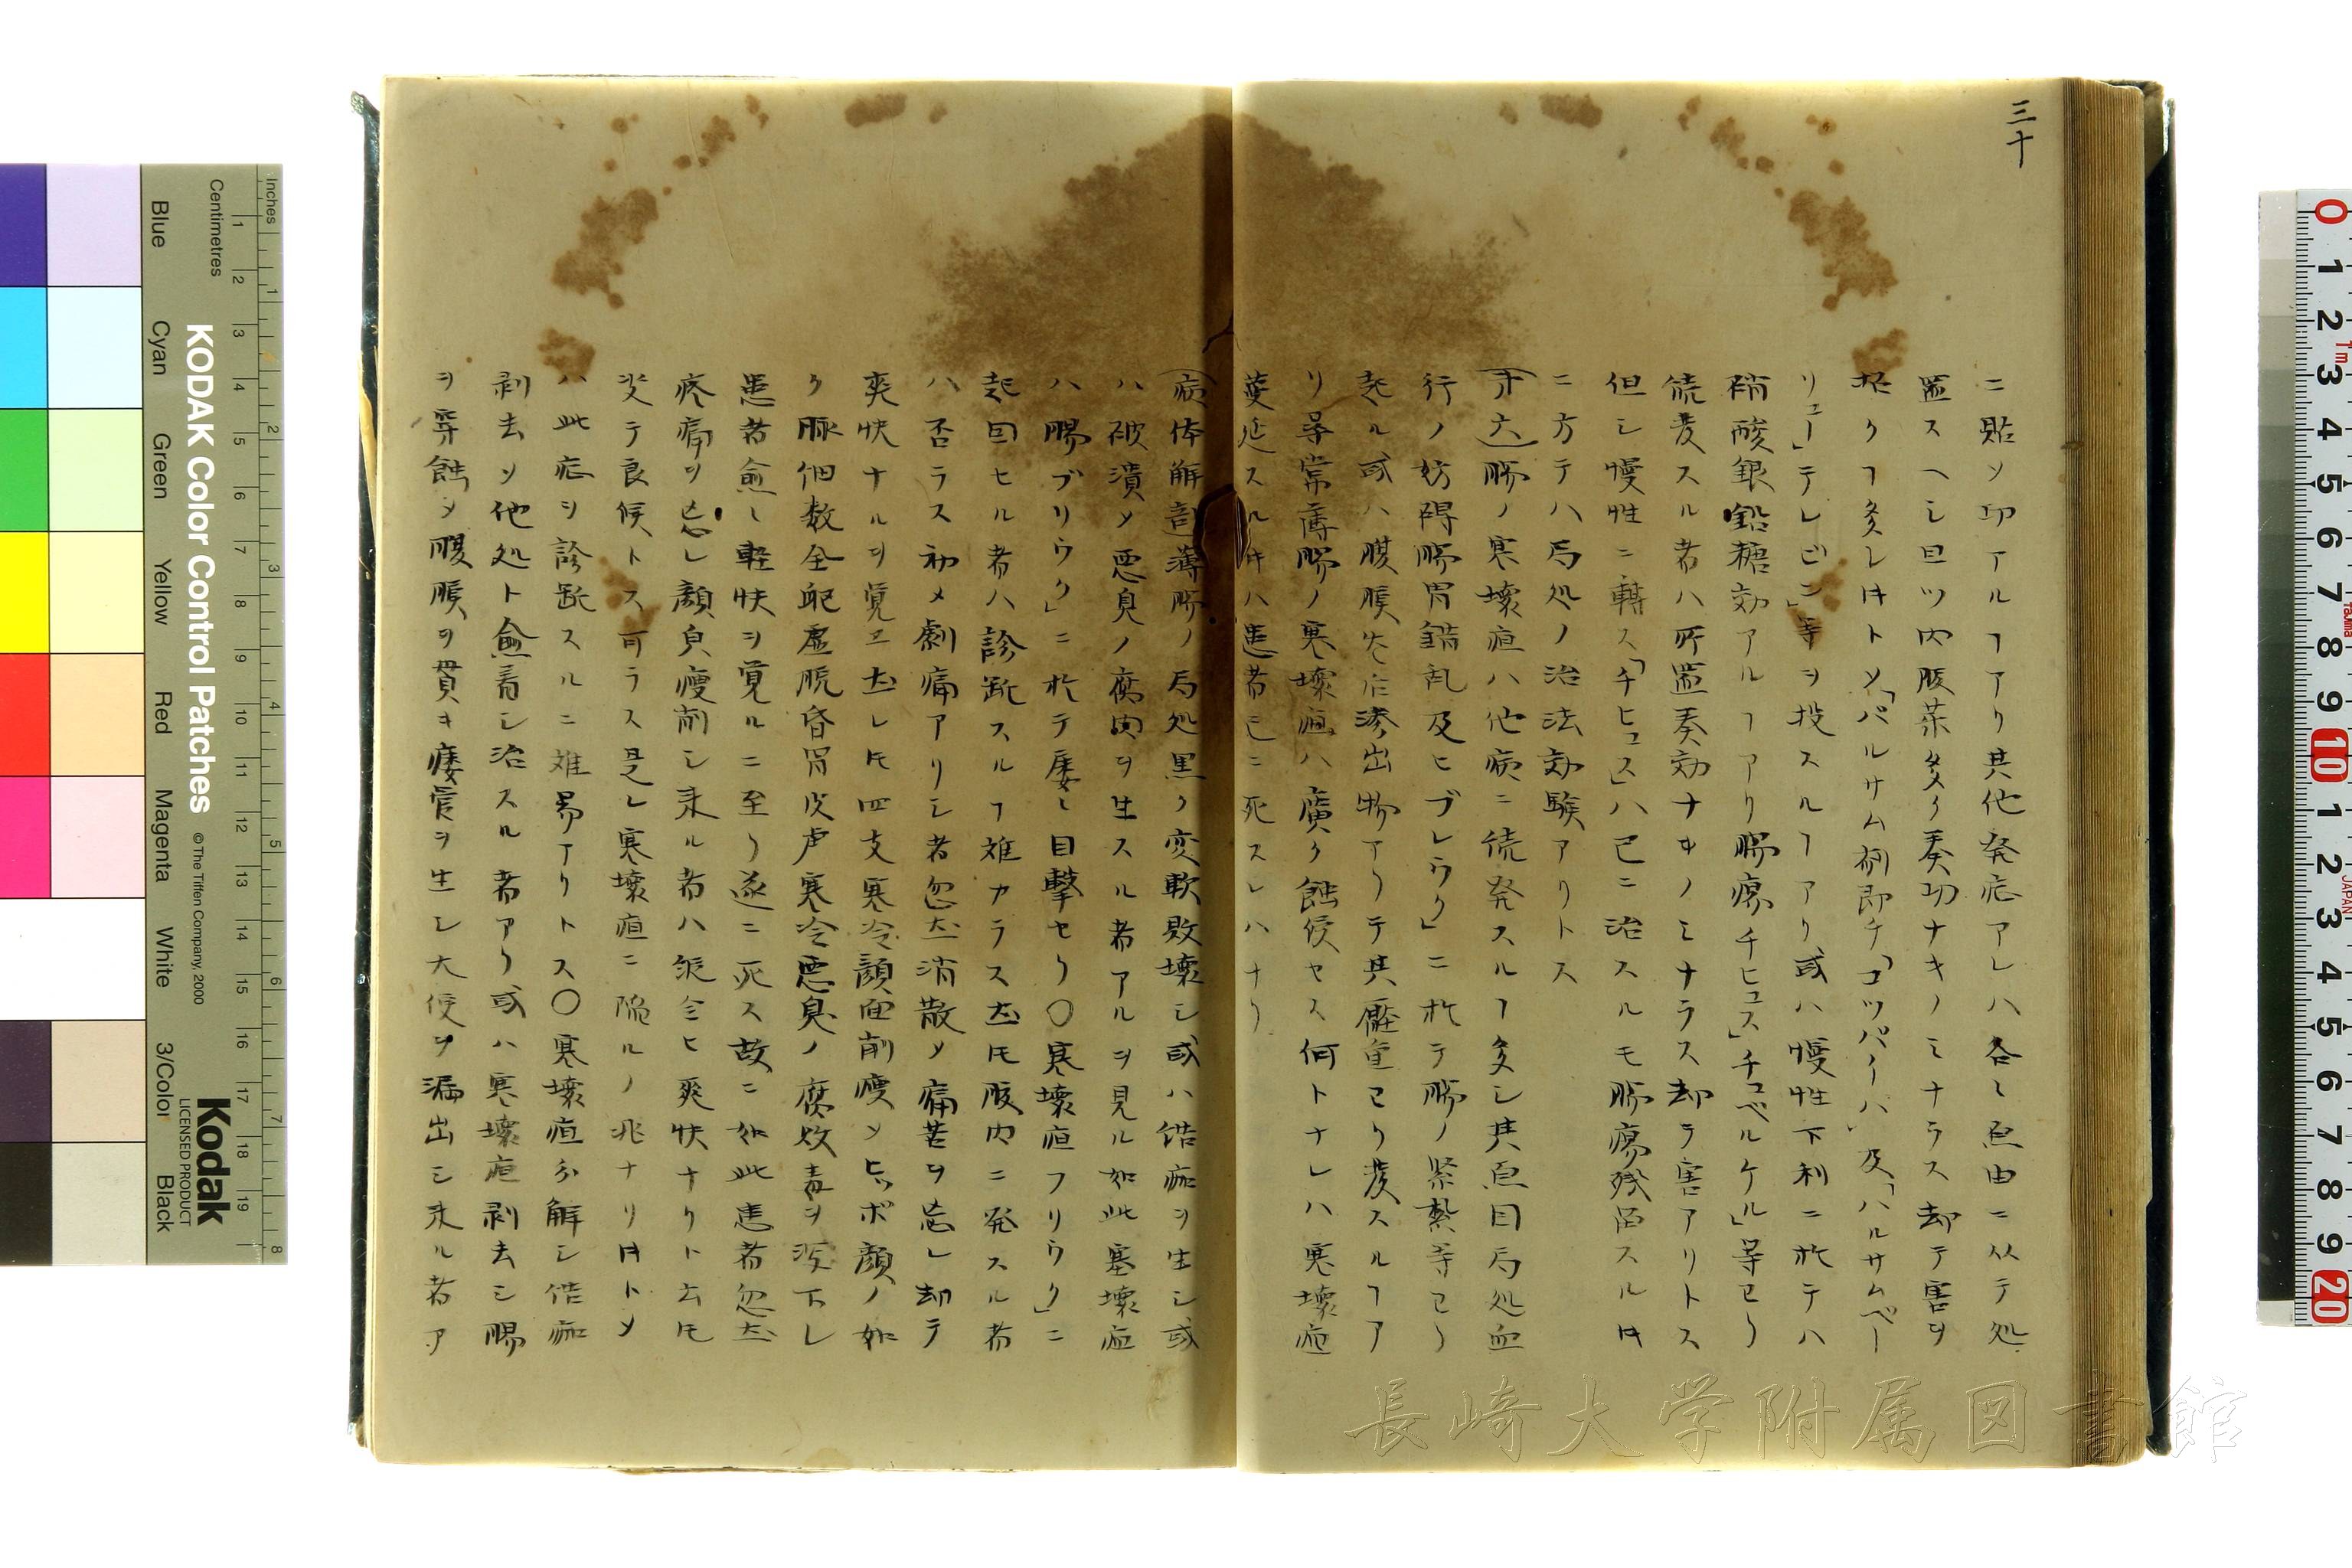 三十
ニ貼ソ功アルヿアリ其他発症アレハ各〻原由ニ从テ処
置スヘシ且ツ内服薬多ク奏功ナキノミナラス却テ害ヲ
招クヿ多レ㸿トソ「バルサム」剤即チ「コツパイハ」及「ハルサムペー
リュー」テレビン」等ヲ投スルヿアリ或ハ慢性下利ニ於テハ
硝酸銀鉛糖効アルヿアリ腸瘍チヒュス」チュベルケル」等ヨリ
続発スル者ハ所置奏効ナキノミナラス却テ害アリトス
但シ慢性ニ轉ス「チヒュス」ハ已ニ治スルモ腸瘍残留スル㸿
ニ方テハ局処ノ治法効験アリトス
㐧六 腸ノ寒壊疽ハ他病ニ続発スルヿ多シ其原因局処血
行ノ妨碍腸胃錯乱及ヒブレウク」ニ於テ腸ノ緊紮等ヨリ
起ル或ハ膜膜
リ尋常薄腸ノ寒壊疽ハ廣ク蝕侵セス何トナレハ寒壊疽
蔓延スル㸿ハ患者已ニ死スレハナリ
病体解剖薄腸ノ局処黒ク変軟敗壊シ或ハ偌痂ヲ生シ或
ハ破潰メ悪臭ノ腐肉ヲ生スル者アルヲ見ル如此塞壊疽
ハ腸ブリウク」ニ於テ屡〻目撃セリ〇寒壊疽フリウク」ニ
起因セル者ハ診断スルヿ難カラス𪜈腹内ニ発スル者
ハ否ラス初メ劇痛アリシ者忽然消散メ痛苦ヲ忘レ却テ
爽快ナルヲ覚ヱ然レ𪜈四支寒冷顔面削痩ソヒッポ顔ノ如
ク脉細数全躯虚脱昏冒皮膚寒冷悪臭ノ腐敗毒ヲ瀉下シ
患者愈〻軽快ヲ覚ルニ至リ遂ニ死ス故ニ如此患者忽然
疼痛ヲ忘レ顔貞痩削シ来ル者ハ縦令ヒ爽快ナリト云𪜈
決テ良候トス可ラス是レ寒壊疽ニ陥ルノ兆ナリ㸿トメ
ハ此症ヲ診断スルニ難易アリトス〇寒壊疽分解シ偌痂
剥去ソ他処ト愈着シ治スル者アリ或ハ寒壊疽剥去シ腸
ヲ穿蝕シ腹膜ヲ貫キ瘻管ヲ生シ大便ヲ漏出シ来ル者ア
長崎大学附属図書館